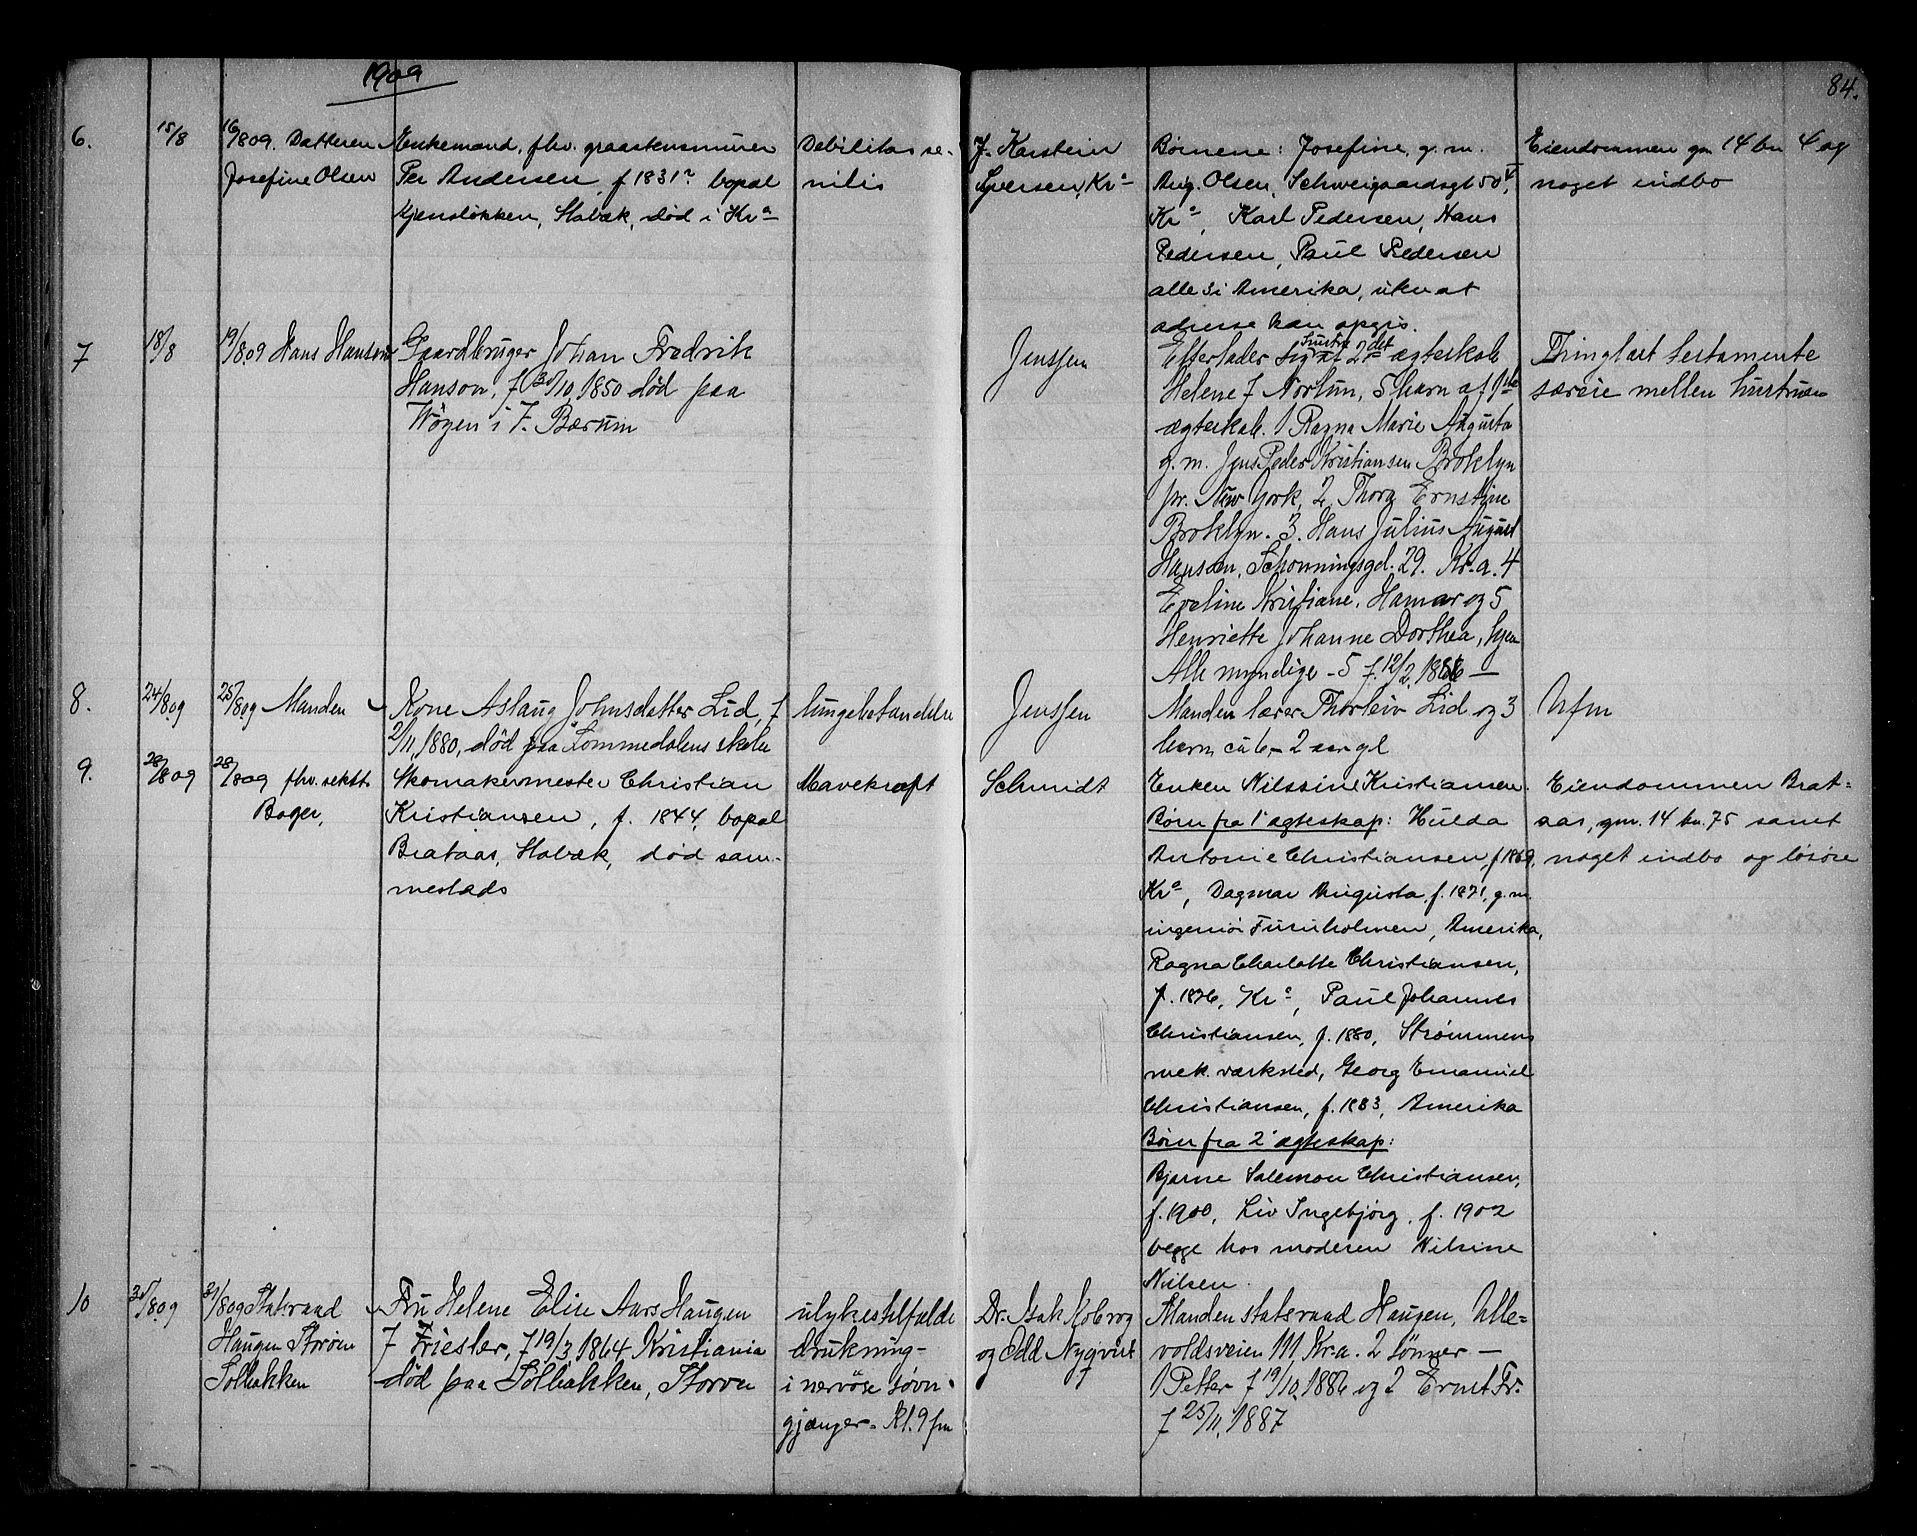 1909
84.
6.
15/8
16/8 09. Datteren
Josefine Olsen
Enkemand, fhv. graastensminer
Per Andersen, f 1831? bopæl
Kjensløkken, Stabæk, død i Kra
Debilitas se-
nilis
J. Karstein
Syversen, Kra
Børnene: Josefine, g. m.
Aug. Olsen, Schweigaardsgt 50 V,
Kra, Karl Pedersen, Hans
Pedersen, Paul Pedersen
alle 3 i Amerika, uten at
adresse kan opgis.
Eiendommen gn 14 bn 4 og
noget indbo
7
18/8
19/8 09 Hans Hanson
Gaardbruger Johan Fredrik
Hanson, f 30/10 1850 død paa
Wøyen i V. Bærum
Jenssen
Efterlader sig hustru af 2det ægteskab
Helene f Norlun, 5 barn af 1ste
ægteskab. 1 Ragna Marie Augusta
g. m. Jens Peder Kristiansen Broklyn
pr. New York, 2. Thora Ernstine
Broklyn. 3. Hans Julius August
Hanson, Schonningsgd. 29. Kr.a. 4
Eveline Kristiane. Hamar og 5
Henriette Johanne Dorthea, hjem
Alle myndige - 5 f. 12/2 1886 —
Thinglæst testamente
særeie mellen hustruen
8.
24/8 09
25/8 09 Manden
Kone Aslaug Johnsdatter Lid, f
2/11 1880, død paa Lommedalens skole
lungebetændelse
Jenssen
Manden lærer Thorleiv Lid og 3
barn ca 6 - 2 aar gl
Ufm
9.
28/8 09
28/8 09 fhv. seksts
Bager,
Skomakermester Christian
Kristiansen, f. 1844, bopæl
Brataas, Stabæk, død sam-
mesteds
Mavekræft
Schmidt
Enken Nilssine Kristiansen.
Børn fra 1' ægteskap: Hulda
Antonie Christiansen, f 1869,
Kra, Dagmar Augusta, f. 1871, g. m.
ingeniør Furuholmen, Amerika,
Ragna Charlotte Christiansen,
f. 1876, Kra, Paul Johannes
Christiansen, f. 1880, Strømmens
mek. værksted, Georg Emanuel
Christiansen, f. 1883, Amerika
Børn fra 2' ægteskap:
Bjarne Salemon Christiansen,
f. 1900, Liv Ingebjørg, f. 1902
begge hos moderen Nilsine
Nilsen.
Eiendommen Brat-
aas, gm. 14 bn. 75 samt
noget indbo og løsøre
10
31/8 09
31/8 09 Statsraad
Haugen Storøen
Solbakken
Fru Helene Elise Aars Haugen
f Friesler, f 19/3 1864 Kristiania
død paa Solbakken, Storøen
ulykkestilfælde
drukning -
i nervøse søvn-
gjænger - Kl. 9 fm
Dr. Isak Kobrog
og Odd Nyqvist
Manden statsraad Haugen, Ulle-
voldsveien 111, Kr.a. 2 sønner —
1 Petter f 19/10 1886 og 2 Ernst Fr.
f 25/11 1887